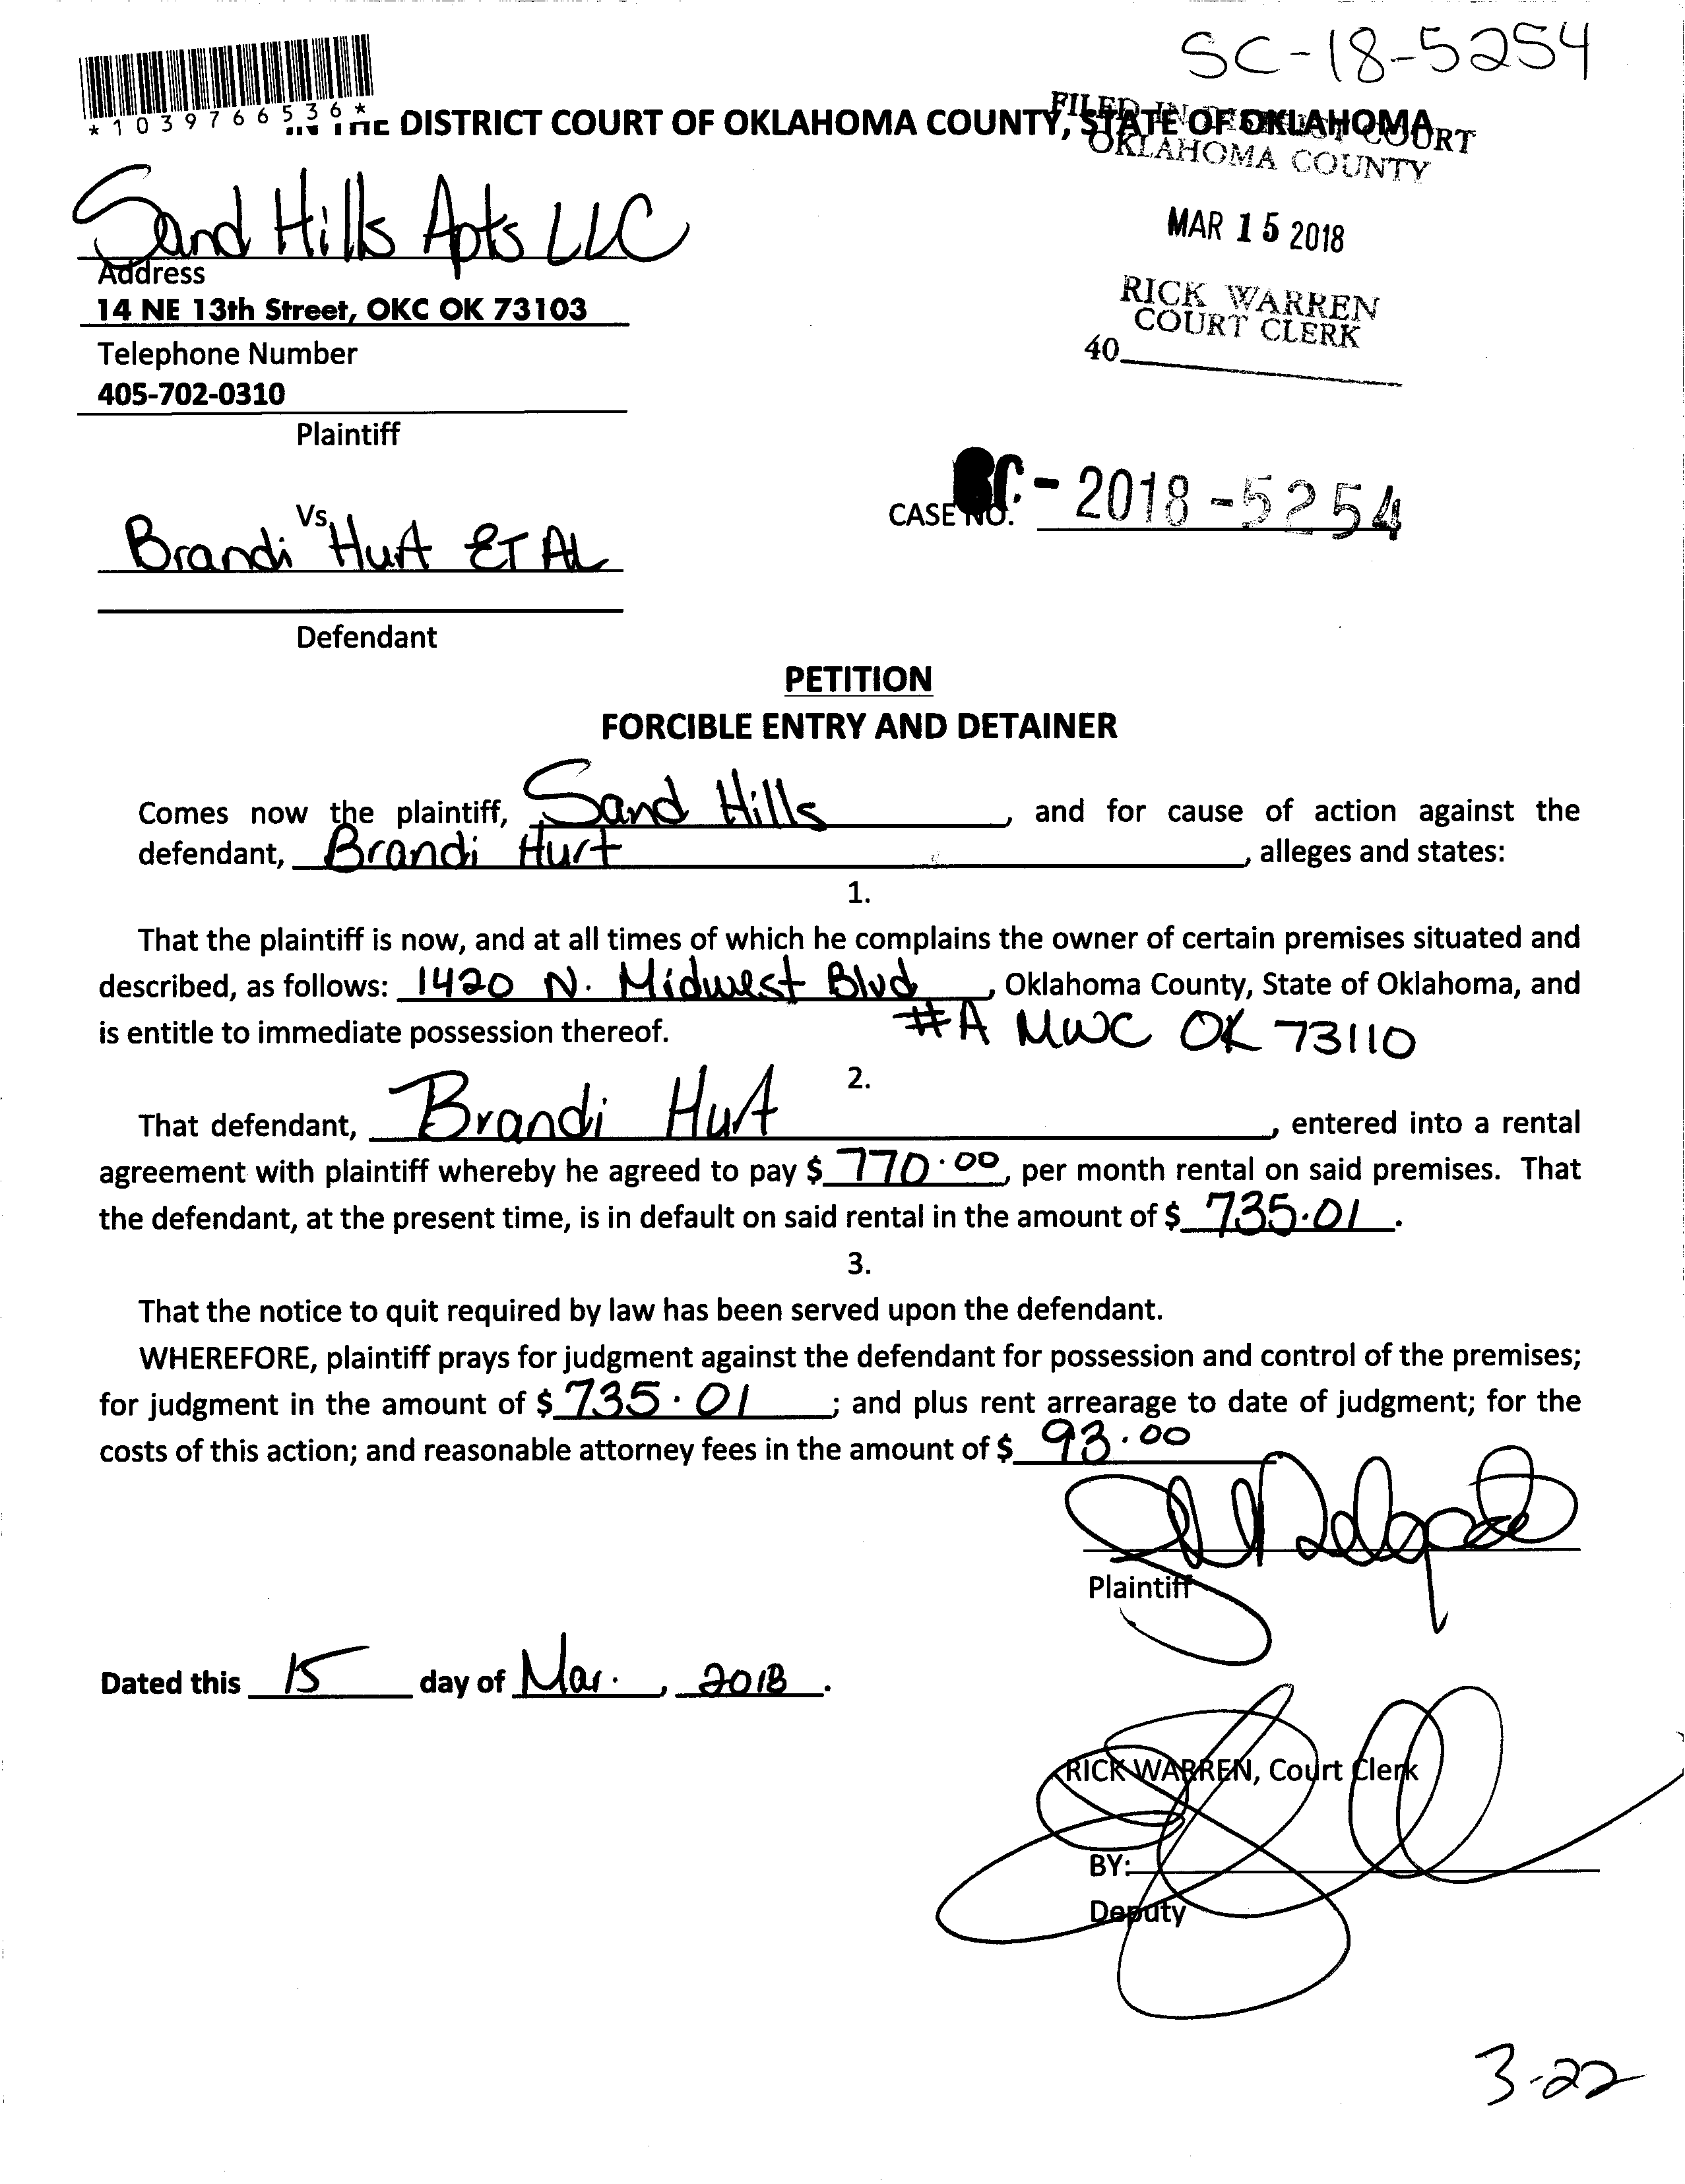 SC-18-5254
*1039766536*
IN THE DISTRICT COURT OF OKLAHOMA COUNTY, STATE OF OKLAHOMA
FILED IN DISTRICT COURT
OKLAHOMA COUNTY
MAR 15 2018
RICK WARREN
COURT CLERK
40
Sand Hills Apts LLC
Address
14 NE 13th Street, OKC OK 73103
Telephone Number
405-702-0310
Plaintiff
Vs
Brandi Hurt ET AL
Defendant
CASE NO. SC - 2018 - 5254
PETITION
FORCIBLE ENTRY AND DETAINER
Comes now the plaintiff, Sand Hills, and for cause of action against the
defendant, Brandi Hurt, alleges and states:
1.
That the plaintiff is now, and at all times of which he complains the owner of certain premises situated and
described, as follows: 1420 N. Midwest Blvd, Oklahoma County, State of Oklahoma, and
is entitle to immediate possession thereof. #A MWC OK 73110
2.
That defendant, Brandi Hurt, entered into a rental
agreement with plaintiff whereby he agreed to pay $ 770.00, per month rental on said premises. That
the defendant, at the present time, is in default on said rental in the amount of $ 735.01.
3.
That the notice to quit required by law has been served upon the defendant.
WHEREFORE, plaintiff prays for judgment against the defendant for possession and control of the premises;
for judgment in the amount of $ 735.01; and plus rent arrearage to date of judgment; for the
costs of this action; and reasonable attorney fees in the amount of $ 93.00
Plaintiff
Dated this 15 day of Mar., 2018.
RICK WARREN, Court Clerk
BY:
Deputy
3-22